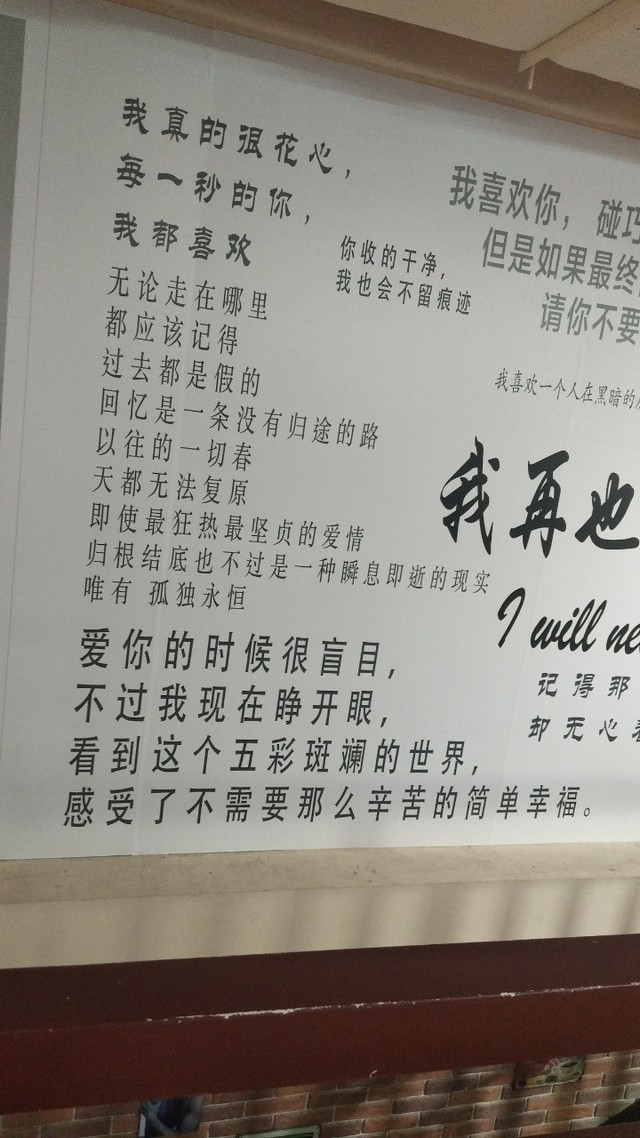 我真的很花心，
每一秒的你，
我都喜欢
你收的干净，
我也会不留痕迹
无论走在哪里
都应该记得
过去都是假的
回忆是一条没有归途的路
以往的一切春
天都无法复原
即使最狂热最坚贞的爱情
归根结底也不过是一种瞬息即逝的现实
唯有 孤独永恒
爱你的时候很盲目，
不过我现在睁开眼，
看到这个五彩斑斓的世界，
感受了不需要那么辛苦的简单幸福。
我喜欢你，碰巧
但是如果最终
请你不要
我喜欢一个人在黑暗的
我再也
I will ne
记得那
却无心